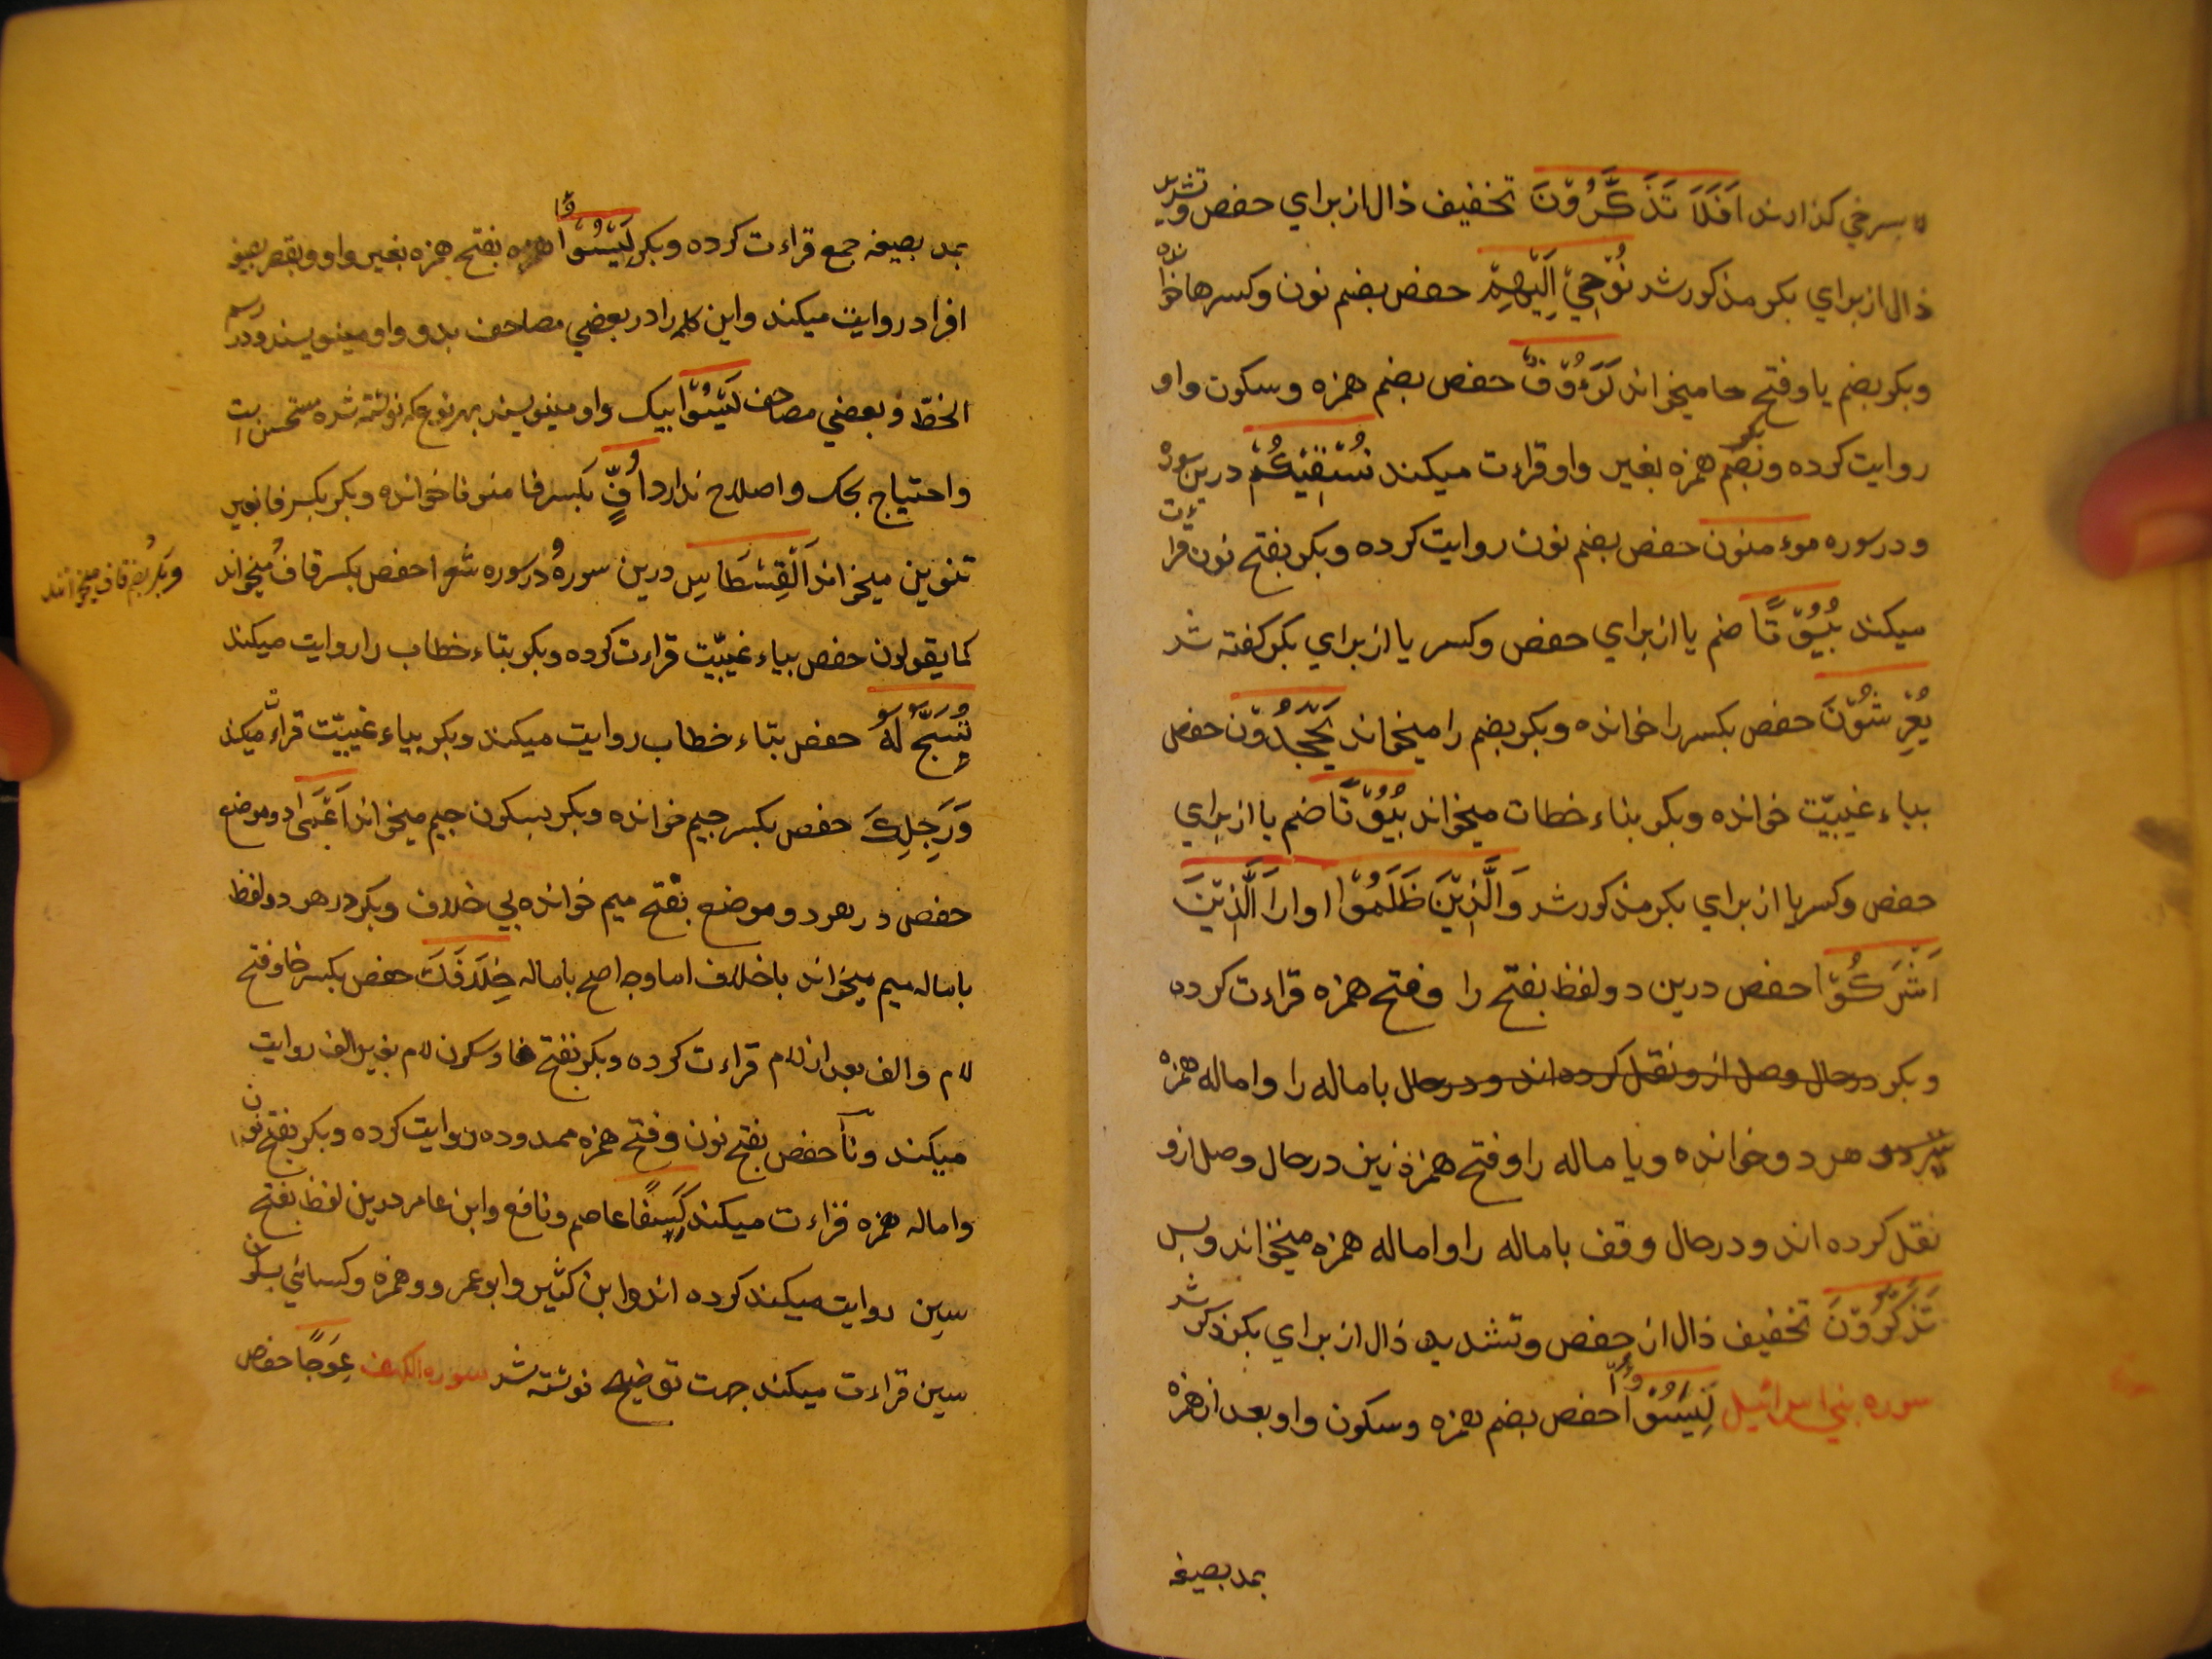 بسرخي كذارند اَفَلَا تَذَكَّرُوْنَ تخفيف ذال از براي حفص وتشديد
ذال از براي بكر مذكور شد نُوْحِيْ اِلَيْهِمْ حفص بضم نون وكسر حا خوانده
وبكر بضم يا وفتح حا ميخواند لَرَءُوْفٌ حفص بضم همزه وسكون واو
روايت كرده وبكر بضم همزه بغير واو قراءت ميكند نُسْقِيْكُمْ درين سوره
ودر سوره موءمنون حفص بضم نون روايت كرده وبكر بفتح نون قراءت
ميكند بُيُوْتًا ضم با از براي حفص وكسر با از براي بكر كفته شد
يُعْرِشُوْنَ حفص بكسر را خوانده وبكر بضم را ميخواند يَجْحَدُوْن حفص
بياء غيبيّت خوانده وبكر بتاء خطات ميخواند بُيُوْتًا ضم با از براي
حفص وكسر با از براي بكر مذكور شد وَالَّذِيْنَ ظَلَمُوْا اوارَاَلَّذِيْنَ
اَشْرَكُوْا حفص درين دو لفظ بفتح را وفتح همزه قراءت كرده
وبكر درحال وصل ازو نقل كرده اند ودرحال باماله را واماله همزه
هر دو خوانده ويا ماله را وفتح همزه نيز درحال وصل ازو
نقل كرده اند ودرحال وقف باماله را واماله همزه ميخواند وبس
تَذَكَّرُوْنَ تخفيف ذال از حفص وتشديد ذال از براي بكر ذكر شد
سوره بني اسرائيل لِيَسُوْءُوْا حفص بضم همزه وسكون واو بعد از همزه
بمد بصيغه
بمد بصيغه جمع قراءت كرده وبكر لِيَسُوْءَا همزه بفتح همزه بغير واو وبقصر بصيغه
افراد روايت ميكند واين كلمه را در بعضي مصاحف بدو واو مينويسند ودر رسم
الخطّ وبعضي مصاحف لَيَسُوْا بيك واو مينويسند بهر نوع كه نوشته شده مستحسن است
واحتياج بحك واصلاح ندارد اُفٍّ بكسر فا منونا خوانده وبكر بكسر فا بغير
تنوين ميخواند اَلْقِسْطَاسِ درين سوره ودر سوره شعرا حفص بكسر قاف ميخواند
وبكر بضم قاف ميخوانند
كما يقولون حفص بياء غيبيّت قراءت كرده وبكر بتاء خطاب را روايت ميكند
تُسَبِّحُ لَهُ حفص بتاء خطاب روايت ميكند وبكر بياء غيبيّت قراءت ميكند
وَرَجِلِكَ حفص بكسر جيم خوانده وبكر بسكون جيم ميخواند اَعْمَى دو موضع
حفص در هر دو موضع بفتح ميم خوانده بي خلاف وبكر در هر دو لفظ
باماله ميم ميخواند باخلاف اما وجه اصح باماله خِلَافَكَ حفص بكسر خا وفتح
لام والف بعد از لام قراءت كرده وبكر بفتح خا وسكون لام بغير الف روايت
ميكند ونآ حفص بفتح نون وفتح همزه ممدوده روايت كرده وبكر بفتح نون
واماله همزه قراءت ميكند كِسَفًا عاصم ونافع وابن عامر درين لفظ بفتح
سين روايت ميكند كرده اند وابن كثير وابو عمرو وحمزه وكسائي بسكون
سين قراءت ميكند جهت توضيح نوشته شد سوره الكهف عِوَجًا حفص